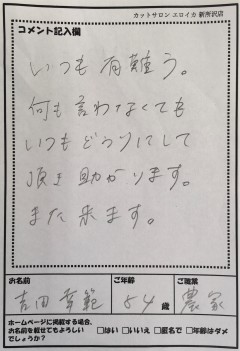 カットサロン エロイカ 新所沢店
コメント記入欄
いつも有難う。
何も言わなくても
いつもどうりにして
頂き助かります。
また来ます。
お名前 ご年齢 ご職業
吉田 範 54歳 農家
ホームページに掲載する場合、
お名前を載せてもよろしい
でしょうか?
□はい □いいえ □匿名で □年齢はダメ